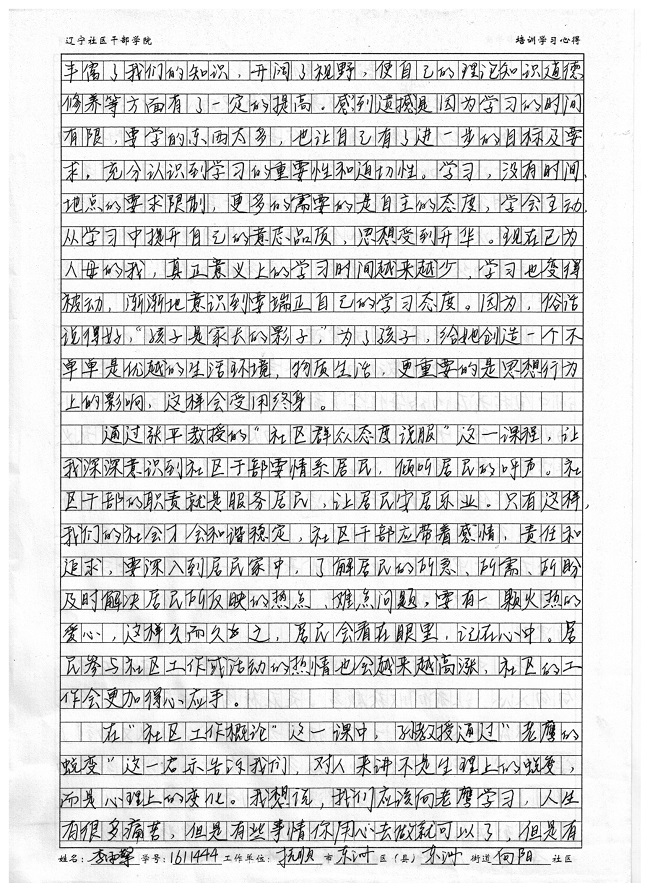 辽宁社区干部学院 培训学习心得
丰儒了我们的知识，开阔了视野，使自己的理论知识道德
修养等方面有了一定的提高。感到遗憾是因为学习的时间
有限，要学的东西太多，也让自己有了进一步的目标及要
求，充分认识到学习的重要性和迫切性。学习，没有时间、
地点的要求限制，更多的需要的是自主的态度，学会主动
从学习中提升自己的意志品质，思想受到升华。现在已为
人母的我，真正意义上的学习时间越来越少，学习也变得
被动，渐渐地意识到要端正自己的学习态度。因为，俗话
说得好，"孩子是家长的影子，"为了孩子，给她创造一个不
单单是优越的生活环境，物质生活，更重要的是思想行为
上的影响，这样会受用终身。
通过张平教授的"社区群众态度说服"这一课程，让
我深深意识到社区干部要情系居民，倾听居民的呼声。社
区干部的职责就是服务居民，让居民安居乐业。只有这样，
我们的社会才会和谐稳定，社区干部应带着感情，责任和
追求，要深入到居民家中，了解居民的所思、所需、所盼
及时解决居民所反映的热点、难点问题，要有一颗火热的
爱心，这样久而久之，居民会看在眼里，记在心中。居
民参与社区工作或活动的热情也会越来越高涨，社区的工
作会更加得心应手。
在"社区工作概论"这一课中，孙教授通过"老鹰的
蜕变"这一启示告诉我们，对人来讲不是生理上的蜕变，
而是心理上的变化。我想说，我们应该向老鹰学习，人生
有很多痛苦，但是有些事情你用心去做就可以了，但是有
姓名：李 学号：1611444 工作单位：抚顺 市 东洲 区（县）东洲 街道 向阳 社区